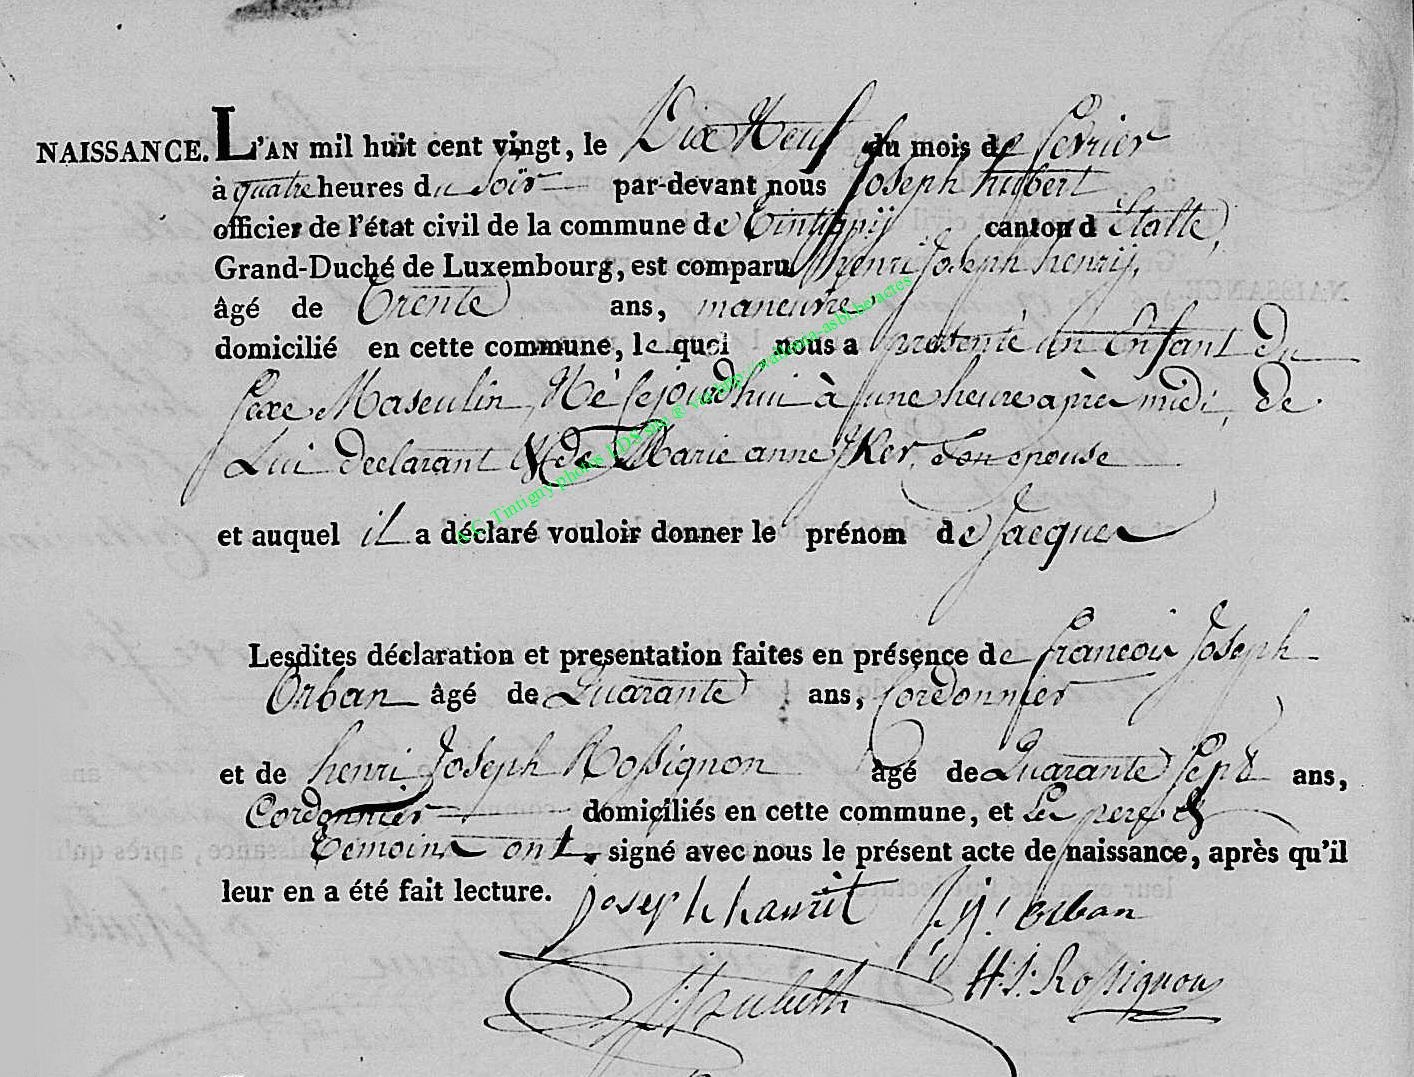 NAISSANCE. L'AN mil huit cent vingt, le Dix Neuf du mois de fevrier
à quatre heures du Soir par-devant nous Joseph hubert
officier de l'état civil de la commune de Tintigny canton d Etalle,
Grand-Duché de Luxembourg, est comparu henri Joseph henry,
âgé de Trente ans, maneuvre
domicilié en cette commune, le quel nous a presenté un Enfant Du
Sexe Masculin, Né Cejourdhui à une heure après midi, De
Lui declarant & de Marie anne Son epouse
et auquel il a déclaré vouloir donner le prénom de Jacques
Lesdites déclaration et presentation faites en présence de francois Joseph
Orban âgé de Quarante ans, Cordonnier
et de henri Joseph Rossignon âgé de Quarante Sept ans,
Cordonnier domiciliés en cette commune, et Le pere &
Témoins ont signé avec nous le présent acte de naissance, après qu'il
leur en a été fait lecture.
Joseph orban
H: J: Rossignon
A.C. Tintigny photos LDS sur ® via http://wallonia-asbl.be/actes